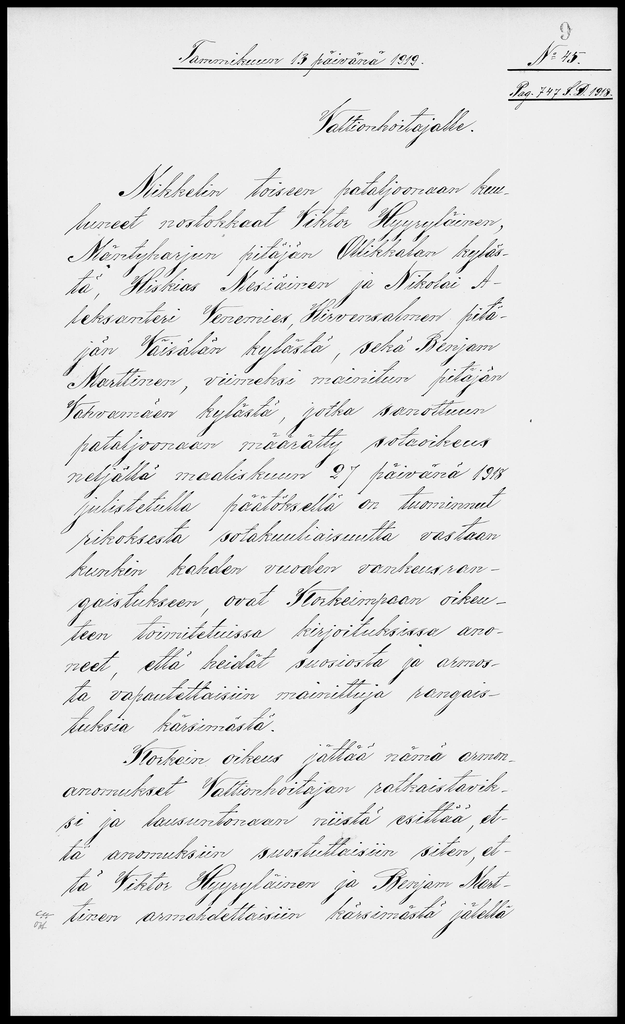 9
Tammikuun 13 päivänä 1919.
No 45.
Pag. 747 S.D. 1918.
Valtionhoitajalle.
Mikkelin toiseen pataljoonaan kuu-
luneet nostokkaat Viktor Hyyryläinen,
Mäntyharjun pitäjän Ollikkalan kyläs-
tä, Hiskias Mesiäinen ja Nikolai A-
leksanteri Venemies, Hirvensalmen pitä-
jän Väisälän kylästä, sekä Benjam
Marttinen, viimeksi mainitun pitäjän
Vahvamäen kylästä, jotka sanottuun
pataljoonaan määrätty sotaoikeus
neljällä maaliskuun 27 päivänä 1918
julistetulla päätöksellä on tuominnut
rikoksesta sotakuuliaisuutta vastaan
kunkin kahden vuoden vankeusran-
gaistukseen, ovat Korkeimpaan oikeu-
teen toimitetuissa kirjoituksissa ano-
neet, että heidät suosiosta ja armos-
ta vapautettaisiin mainittuja rangais-
tuksia kärsimästä.
Korkein oikeus jättää nämä armon-
anomukset Valtionhoitajan ratkaistavik-
si ja lausuntonaan niistä esittää, et-
tä anomuksiin suostuttaisiin siten, et-
tä Viktor Hyyryläinen ja Benjam Mart-
tinen armahdettaisiin kärsimästä jälellä